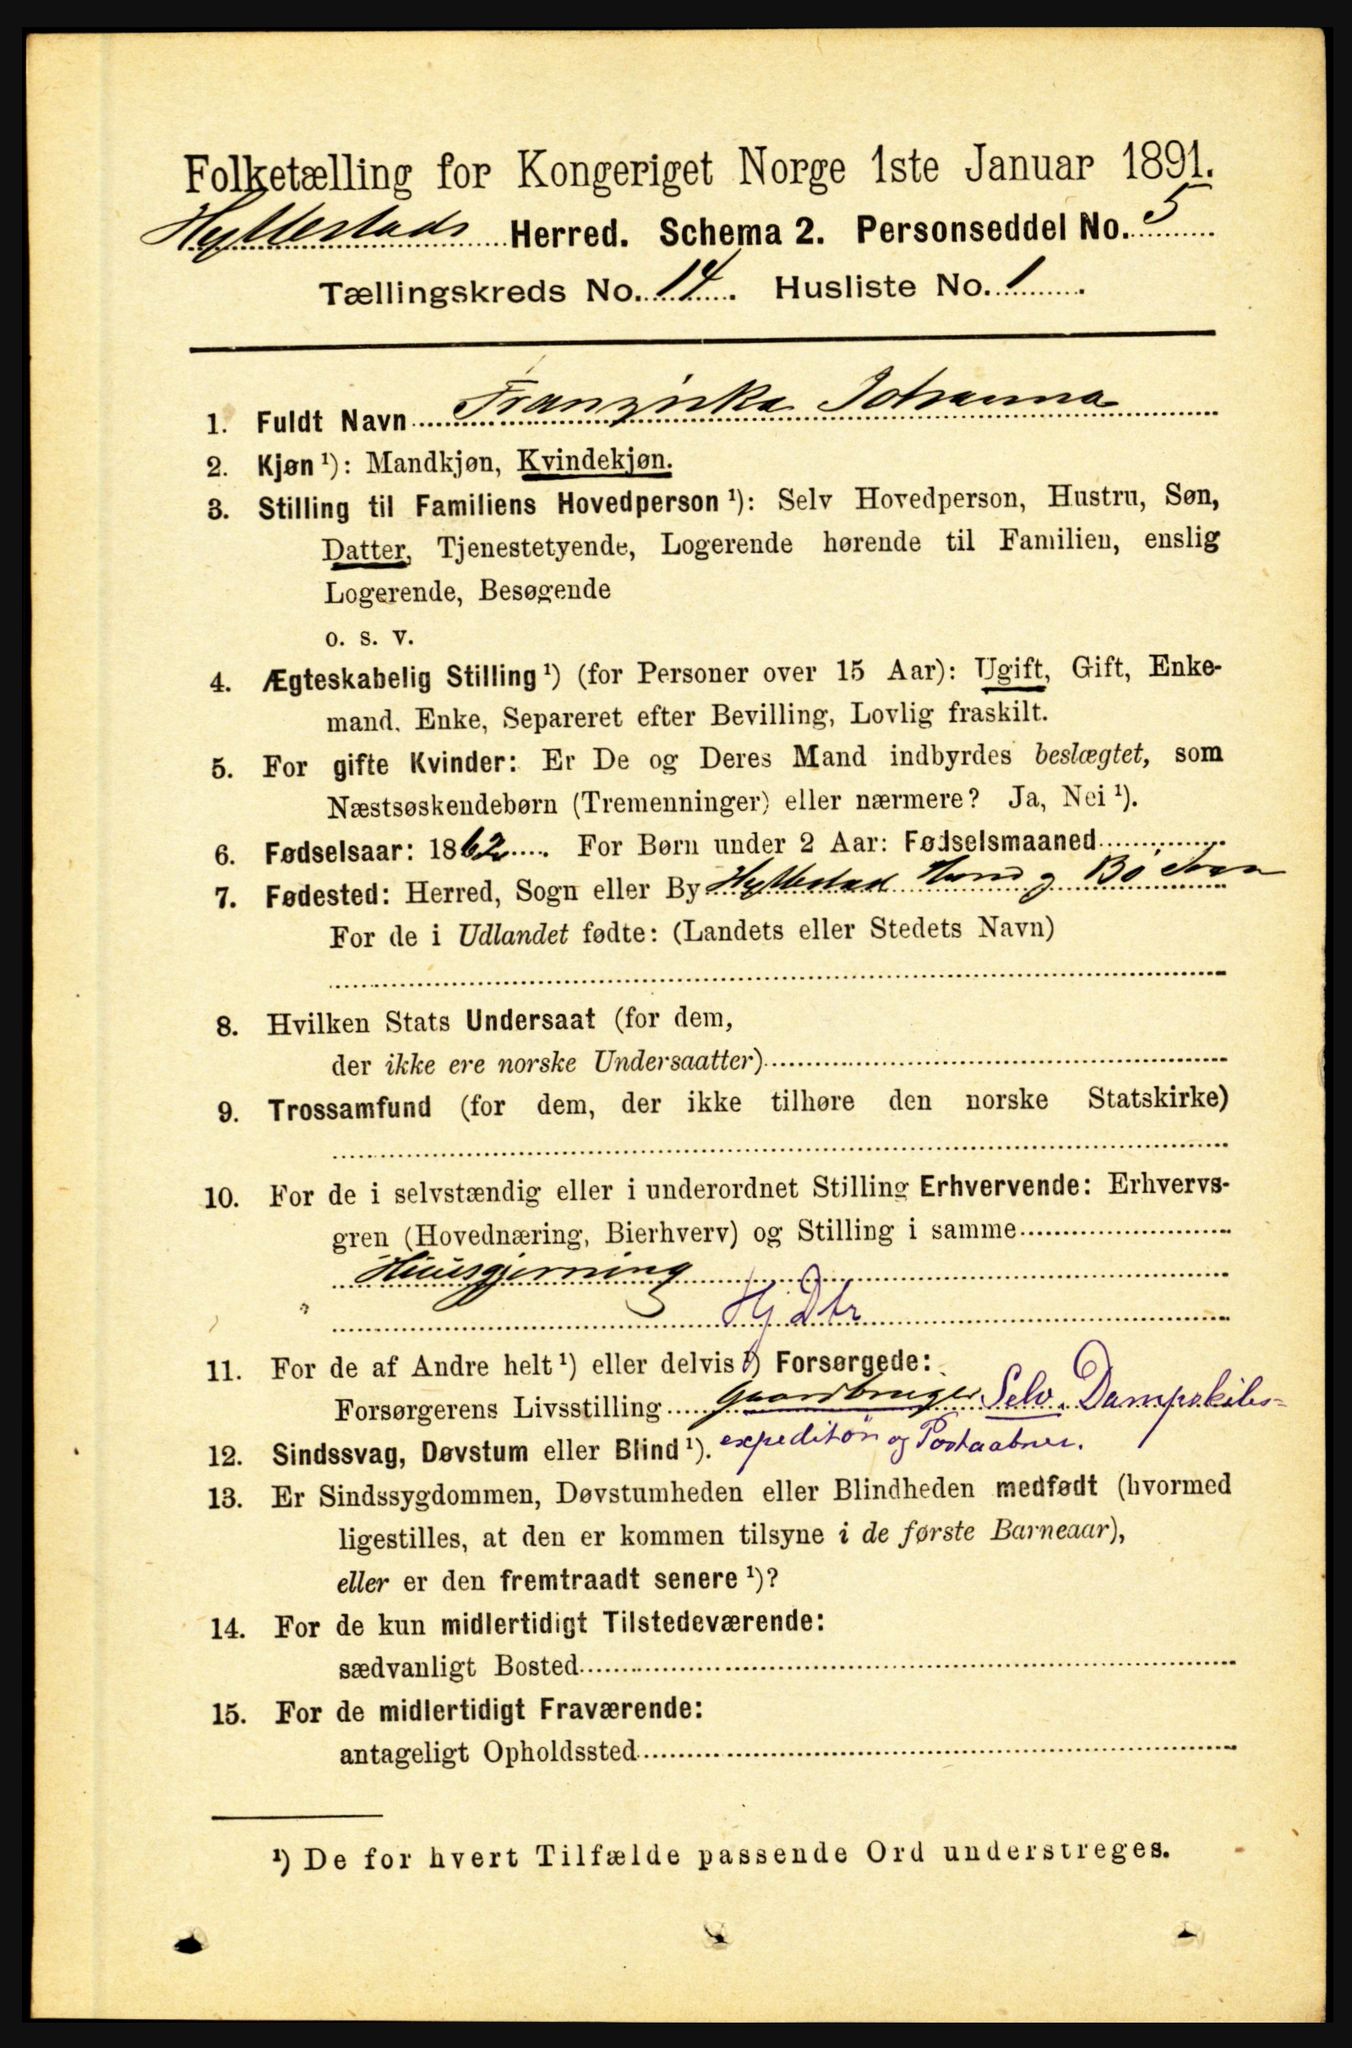 Folketælling for Kongeriget Norge 1ste Januar 1891.
Hyllestads Herred. Schema 2. Personseddel No. 5
Tællingskreds No. 14. Husliste No. 1.
1. Fuldt Navn Franziska Johanna
2. Kjøn ¹): Mandkjøn, Kvindekjøn.
3. Stilling til Familiens Hovedperson ¹): Selv Hovedperson, Hustru, Søn,
Datter, Tjenestetyende, Logerende hørende til Familien, enslig
Logerende, Besøgende
o. s. v.
4. Ægteskabelig Stilling ¹) (for Personer over 15 Aar): Ugift, Gift, Enke-
mand, Enke, Separeret efter Bevilling, Lovlig fraskilt.
5. For gifte Kvinder: Er De og Deres Mand indbyrdes beslægtet, som
Næstsøskendebørn (Tremenninger) eller nærmere? Ja, Nei ¹).
6. Fødselsaar: 1862. For Børn under 2 Aar: Fødselsmaaned
7. Fødested: Herred, Sogn eller By Hyllestad Bø
For de i Udlandet fødte: (Landets eller Stedets Navn)
8. Hvilken Stats Undersaat (for dem,
der ikke ere norske Undersaatter)
9. Trossamfund (for dem, der ikke tilhøre den norske Statskirke)
10. For de i selvstændig eller i underordnet Stilling Erhvervende: Erhvervs-
gren (Hovednæring, Bierhverv) og Stilling i samme
Huusgjerning
Hj Dtr
11. For de af Andre helt ¹) eller delvis ¹) Forsørgede:
Forsørgerens Livsstilling Gaardbruger Selv. Dampskibs-
expeditør og Postaabner.
12. Sindssvag, Døvstum eller Blind ¹).
13. Er Sindssygdommen, Døvstumheden eller Blindheden medfødt (hvormed
ligestilles, at den er kommen tilsyne i de første Barneaar),
eller er den fremtraadt senere ¹)?
14. For de kun midlertidigt Tilstedeværende:
sædvanligt Bosted
15. For de midlertidigt Fraværende:
antageligt Opholdssted
¹) De for hvert Tilfælde passende Ord understreges.